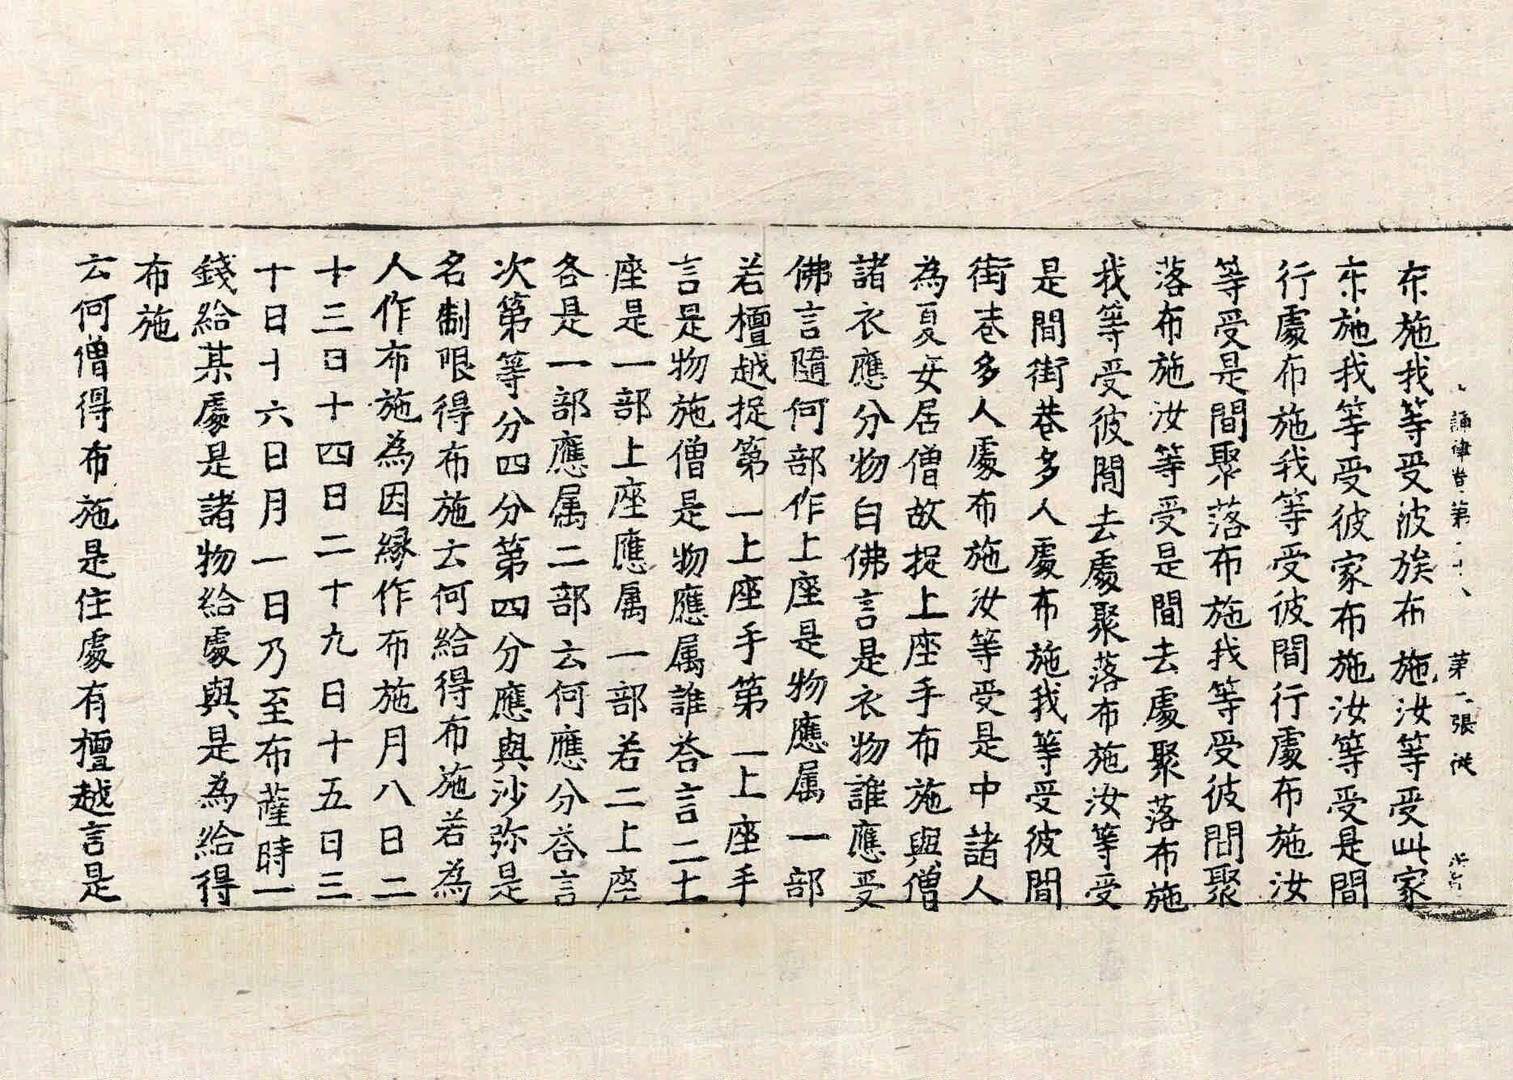 布施我等受彼族布施汝等受此家
布施我等受彼家布施汝等受是間
行處布施我等受彼間行處布施汝
等受是間聚落布施我等受彼間聚
落布施汝等受是間去處聚落布施
我等受彼間去處聚落布施汝等受
是間街巷多人處布施我等受彼間
街巷多人處布施汝等受是中諸人
為夏安居僧故捉上座手布施與僧
諸衣應分物白佛言是衣物誰應受
佛言隨何部作上座是物應属一部
若檀越捉第一上座手第一上座手
言是物施僧是物應属誰荅言二上
座是一部上座應属一部若二上座
各是一部應属二部云何應分荅言
次第等分四分第四分應與沙弥是
名制限得布施云何給得布施若為
人作布施為因緣作布施月八日二
十三日十四日二十九日十五日三
十日十六日月一日乃至布薩時一
錢給某處是諸物給處與是為給得
布施
云何僧得布施是住處有檀越言是